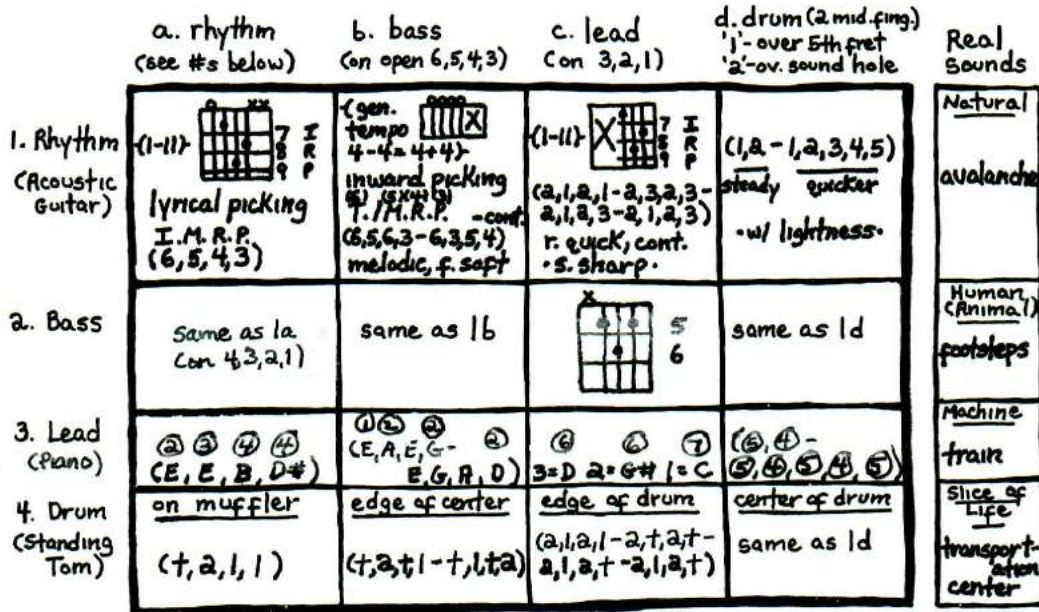 a. rhythm
(see #s below)
b. bass
(on open 6,5,4,3)
c. lead
(on 3,2,1)
d. drum (2 mid. fing.)
'1'- over 5th fret
'2'- ov. sound hole
Real
Sounds
1. Rhythm
(Acoustic
Guitar)
(1-11)
o xx
7 I
8 R
9 P
lyrical picking
I.M.R.P.
(6,5,4,3)
(gen.
tempo
4-4=4+4)
oooo
X
inward picking
T./M.R.P. -cont.
(6,5,6,3-6,3,5,4)
melodic, f. soft
(1-11)
X
7 I
8 R
9 P
(2,1,2,1-2,3,2,3-
2,1,2,3-2,1,2,3)
r. quick, cont.
•s. sharp•
(1,2-1,2,3,4,5)
steady quicker
•w/ lightness•
Natural
avalanche
2. Bass
same as 1a
(on 4,3,2,1)
same as 1b
x
5
6
same as 1d
Human,
(Animal)
footsteps
3. Lead
(Piano)
2 3 4 4
(E, E, B, D#)
1 2 2
(E, A, E, G-
2
E, G, A, D)
6 6 7
3=D 2=G# 1=C
(5, 4-
5, 4, 5, 4, 5)
Machine
train
4. Drum
(Standing
Tom)
on muffler
(t,2,1,1)
edge of center
(t,2,t,1-t,1,t,2)
edge of drum
(2,1,2,1-2,t,2,t-
2,1,2,t-2,1,2,t)
center of drum
same as 1d
Slice of
Life
transport-
ation
center